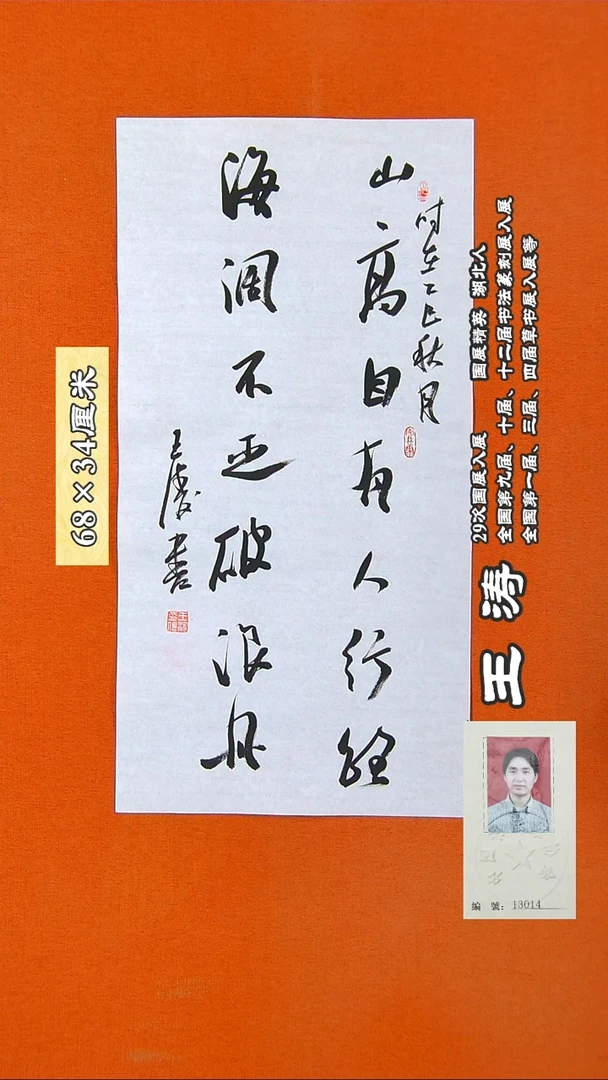 山高自有人行经
海阔不乏破浪舟
时在乙巳秋月
王涛书
68×34厘米
王涛
29次国展入展 国展精英 湖北人
全国第九届、十届、十二届书法篆刻展入展
全国第一届、三届、四届草书展入展等
编號：13014